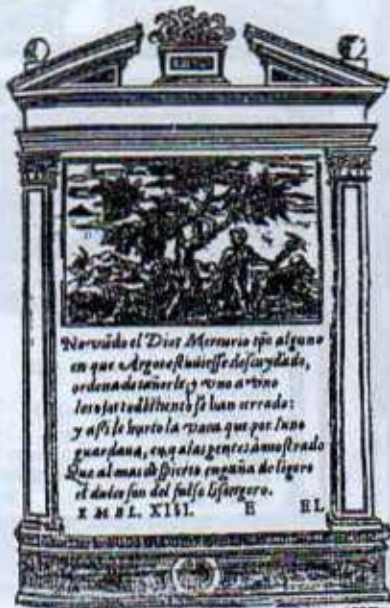 No viẽdo el Dios Mercurio tpõ alguno
en que Argos estuuiesse descuydado,
ordena de tañerle, y vno a vno
los ojos todos ciento se han cerrado:
y assi le hurto la vaca que por Iuno
guardaua, en q̃ a las gentes à mostrado
Que al mas despierto engaña de ligero
el dulce son del falso lisongero.
EMBL. XIII. E EL